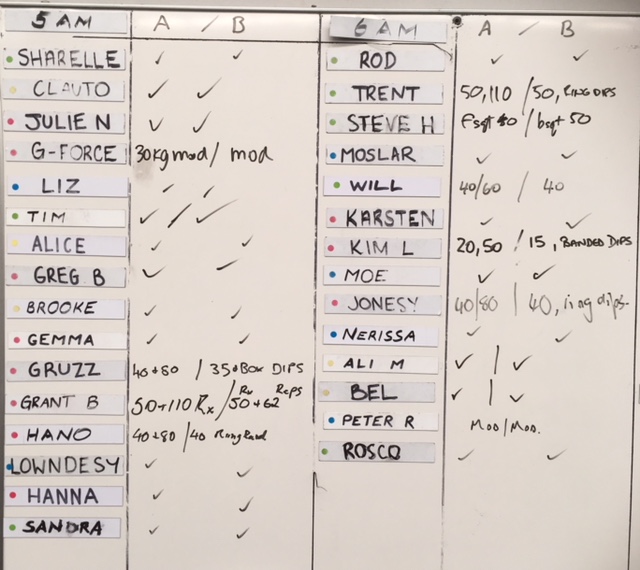 5 AM A / B
SHARELLE ✓ ✓
CLAUTO ✓ ✓
JULIE N ✓ ✓
G-FORCE 30kg mod / mod
LIZ ✓ ✓
TIM ✓ / ✓
ALICE ✓ ✓
GREG B ✓ ✓
BROOKE ✓ ✓
GEMMA ✓ ✓
GRUZZ 40+80 / 35+Box DIPS
GRANT B 50+110 Rx / 50+62 Rx Reps
HANO 40+80 / 40 Ring
LOWNDESY ✓ ✓
HANNA ✓ ✓
SANDRA ✓ ✓
6 AM A / B
ROD ✓ ✓
TRENT 50,110 / 50, RING DIPS
STEVE H Fsqt 80 / bsqt 50
MOSLAR ✓ ✓
WILL 40/60 / 40
KARSTEN ✓ ✓
KIM L 20,50 / 15, BANDED DIPS
MOE ✓ ✓
JONESY 40/80 | 40, ring dips
NERISSA ✓ ✓
ALI M ✓ | ✓
BEL ✓ | ✓
PETER R MOD/MOD.
ROSCO ✓ ✓